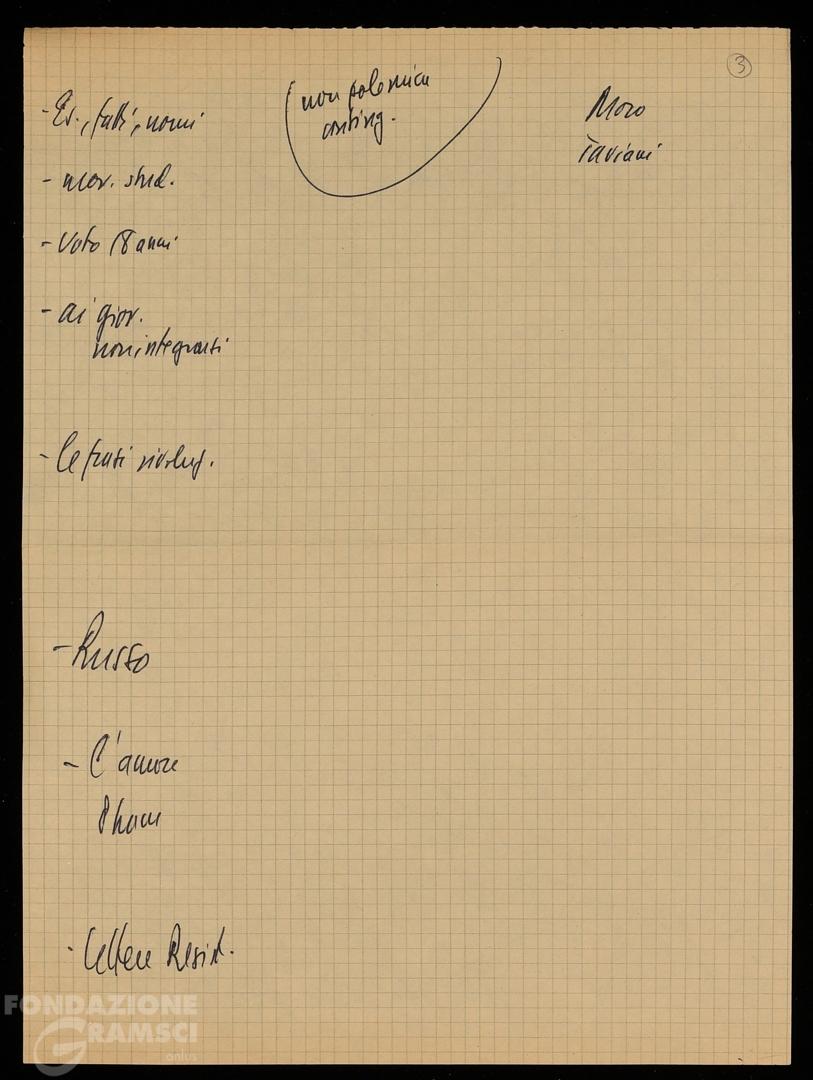 3
- Es., fatti, nomi
(non polemica
conting.
Moro
Taviani
- mov. stud.
- Voto 18 anni
- ai giov.
non integrarsi
- le frasi rivoluz.
- Russo
- L'amore
- Lettere Resist.
FONDAZIONE
GRAMSCI
onlus